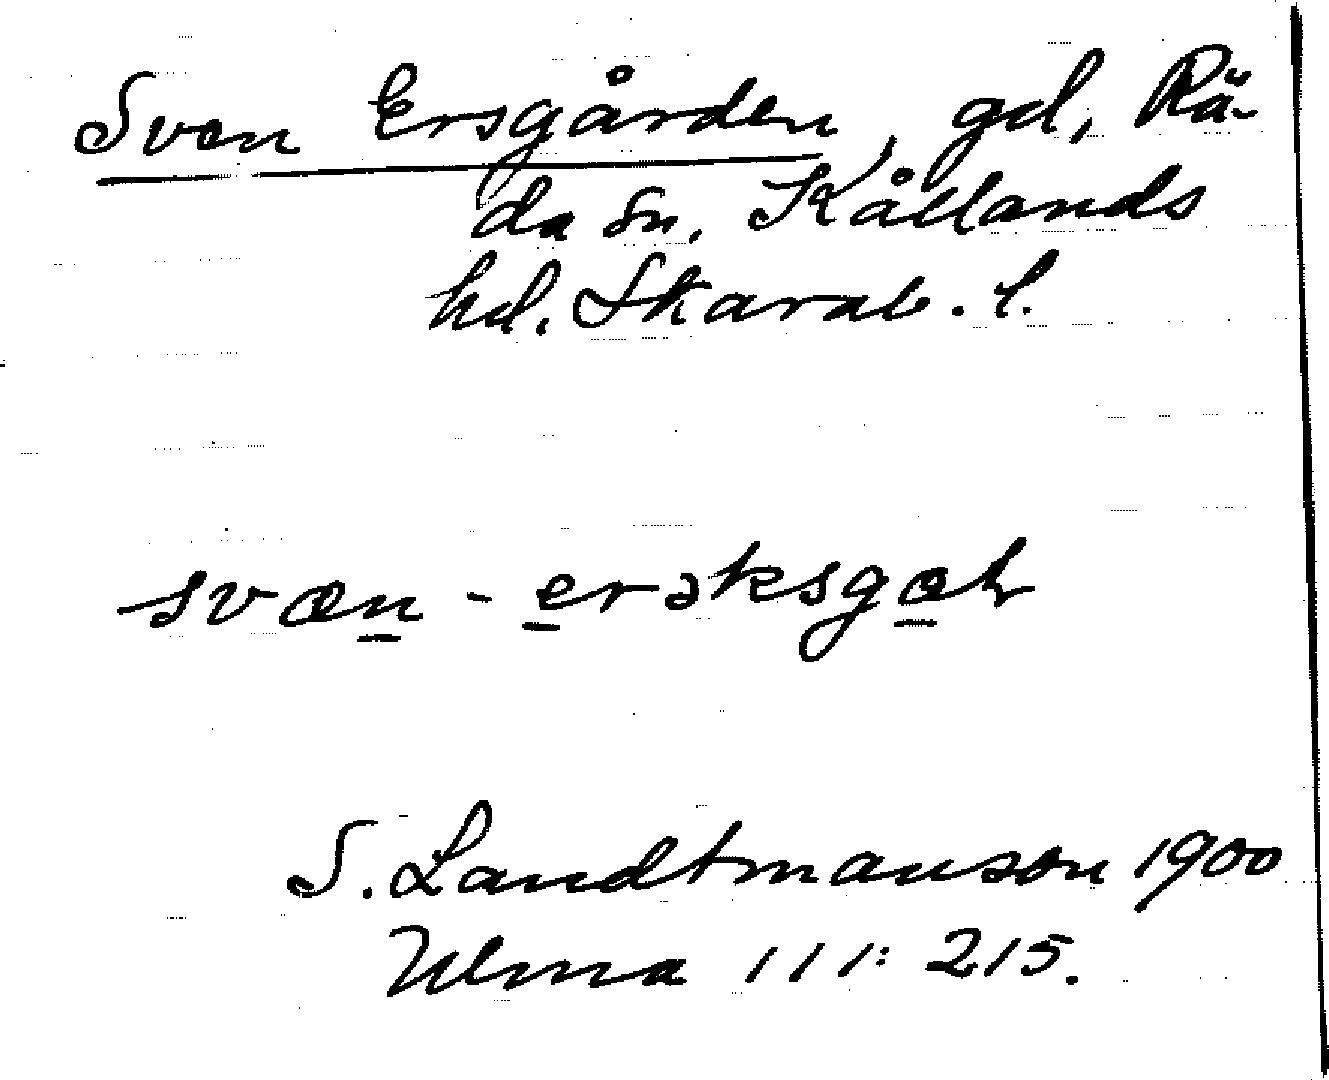 Sven Ersgården, gd, Rä-
da sn, Kållands
hd. Skarab. l.
svæn - erəksgɑh
S. Landtmanson 1900
Ulma 111: 215.